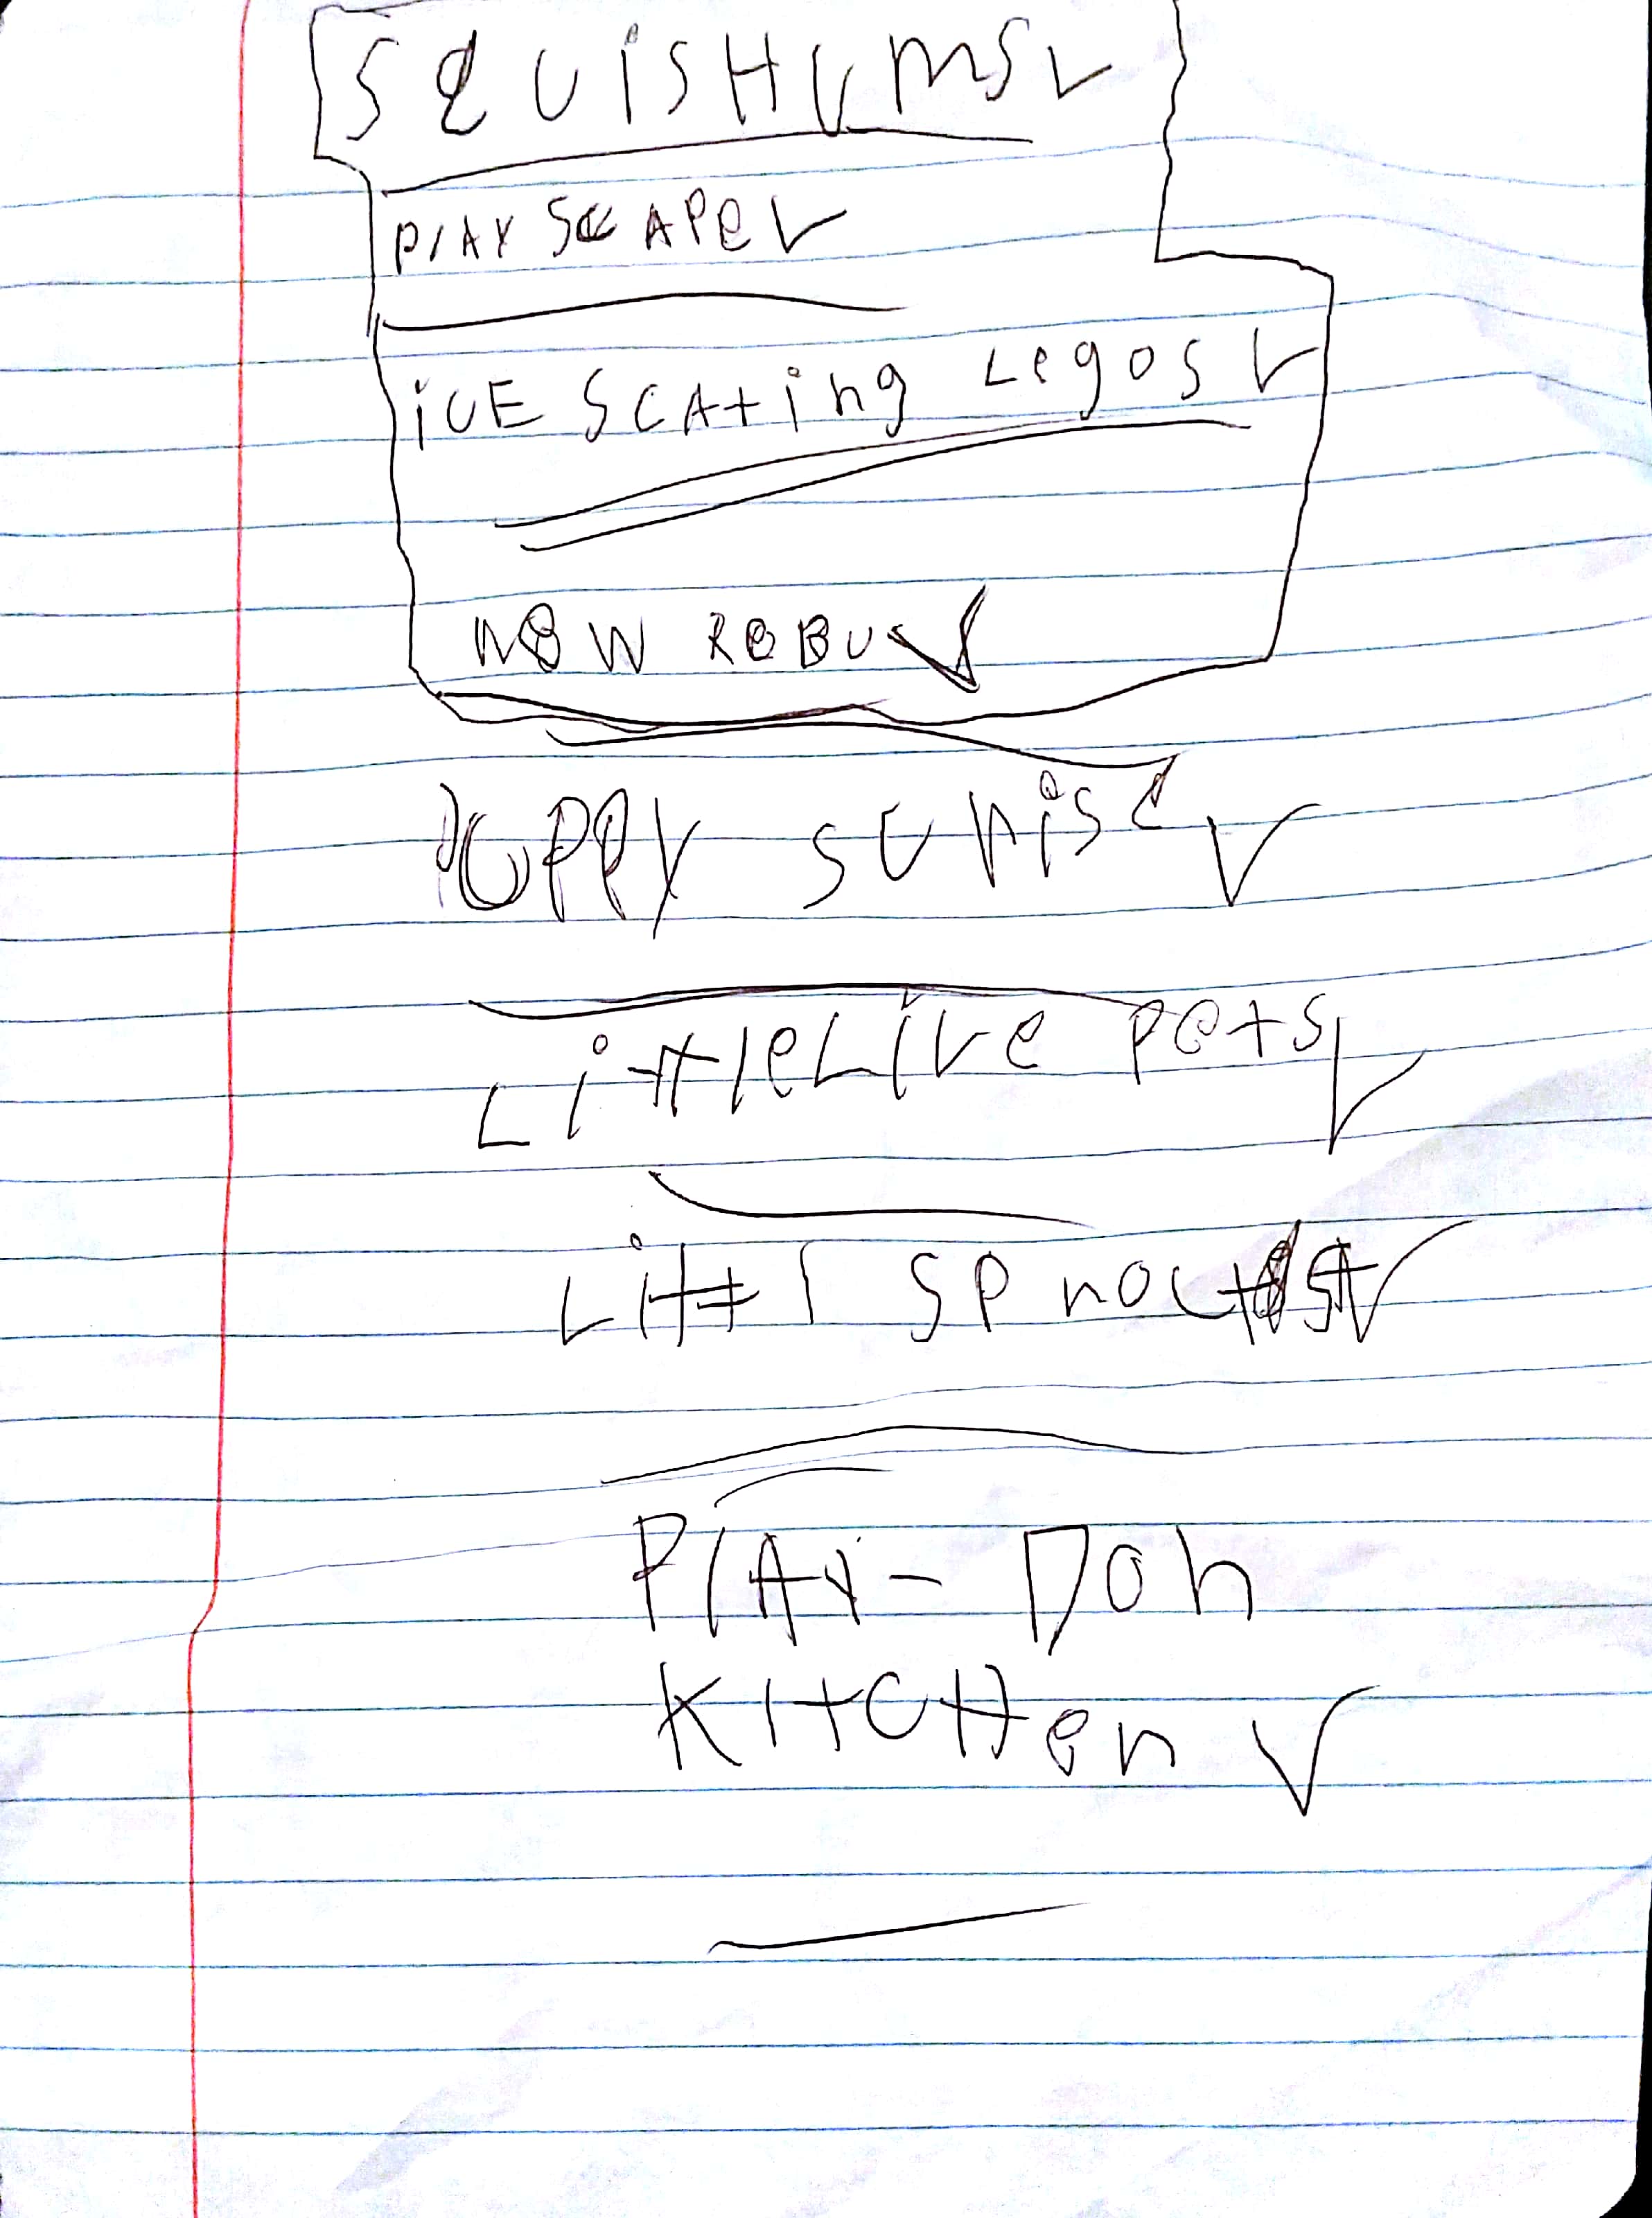 SQUISHUMS ✓
PlAY SCAPE ✓
iCE SCAting Legos ✓
NEW ROBU ✓
PUPPY SUrise ✓
LittleLive Pets ✓
Litt l sp rout
PlAY- Doh
KItCHen ✓